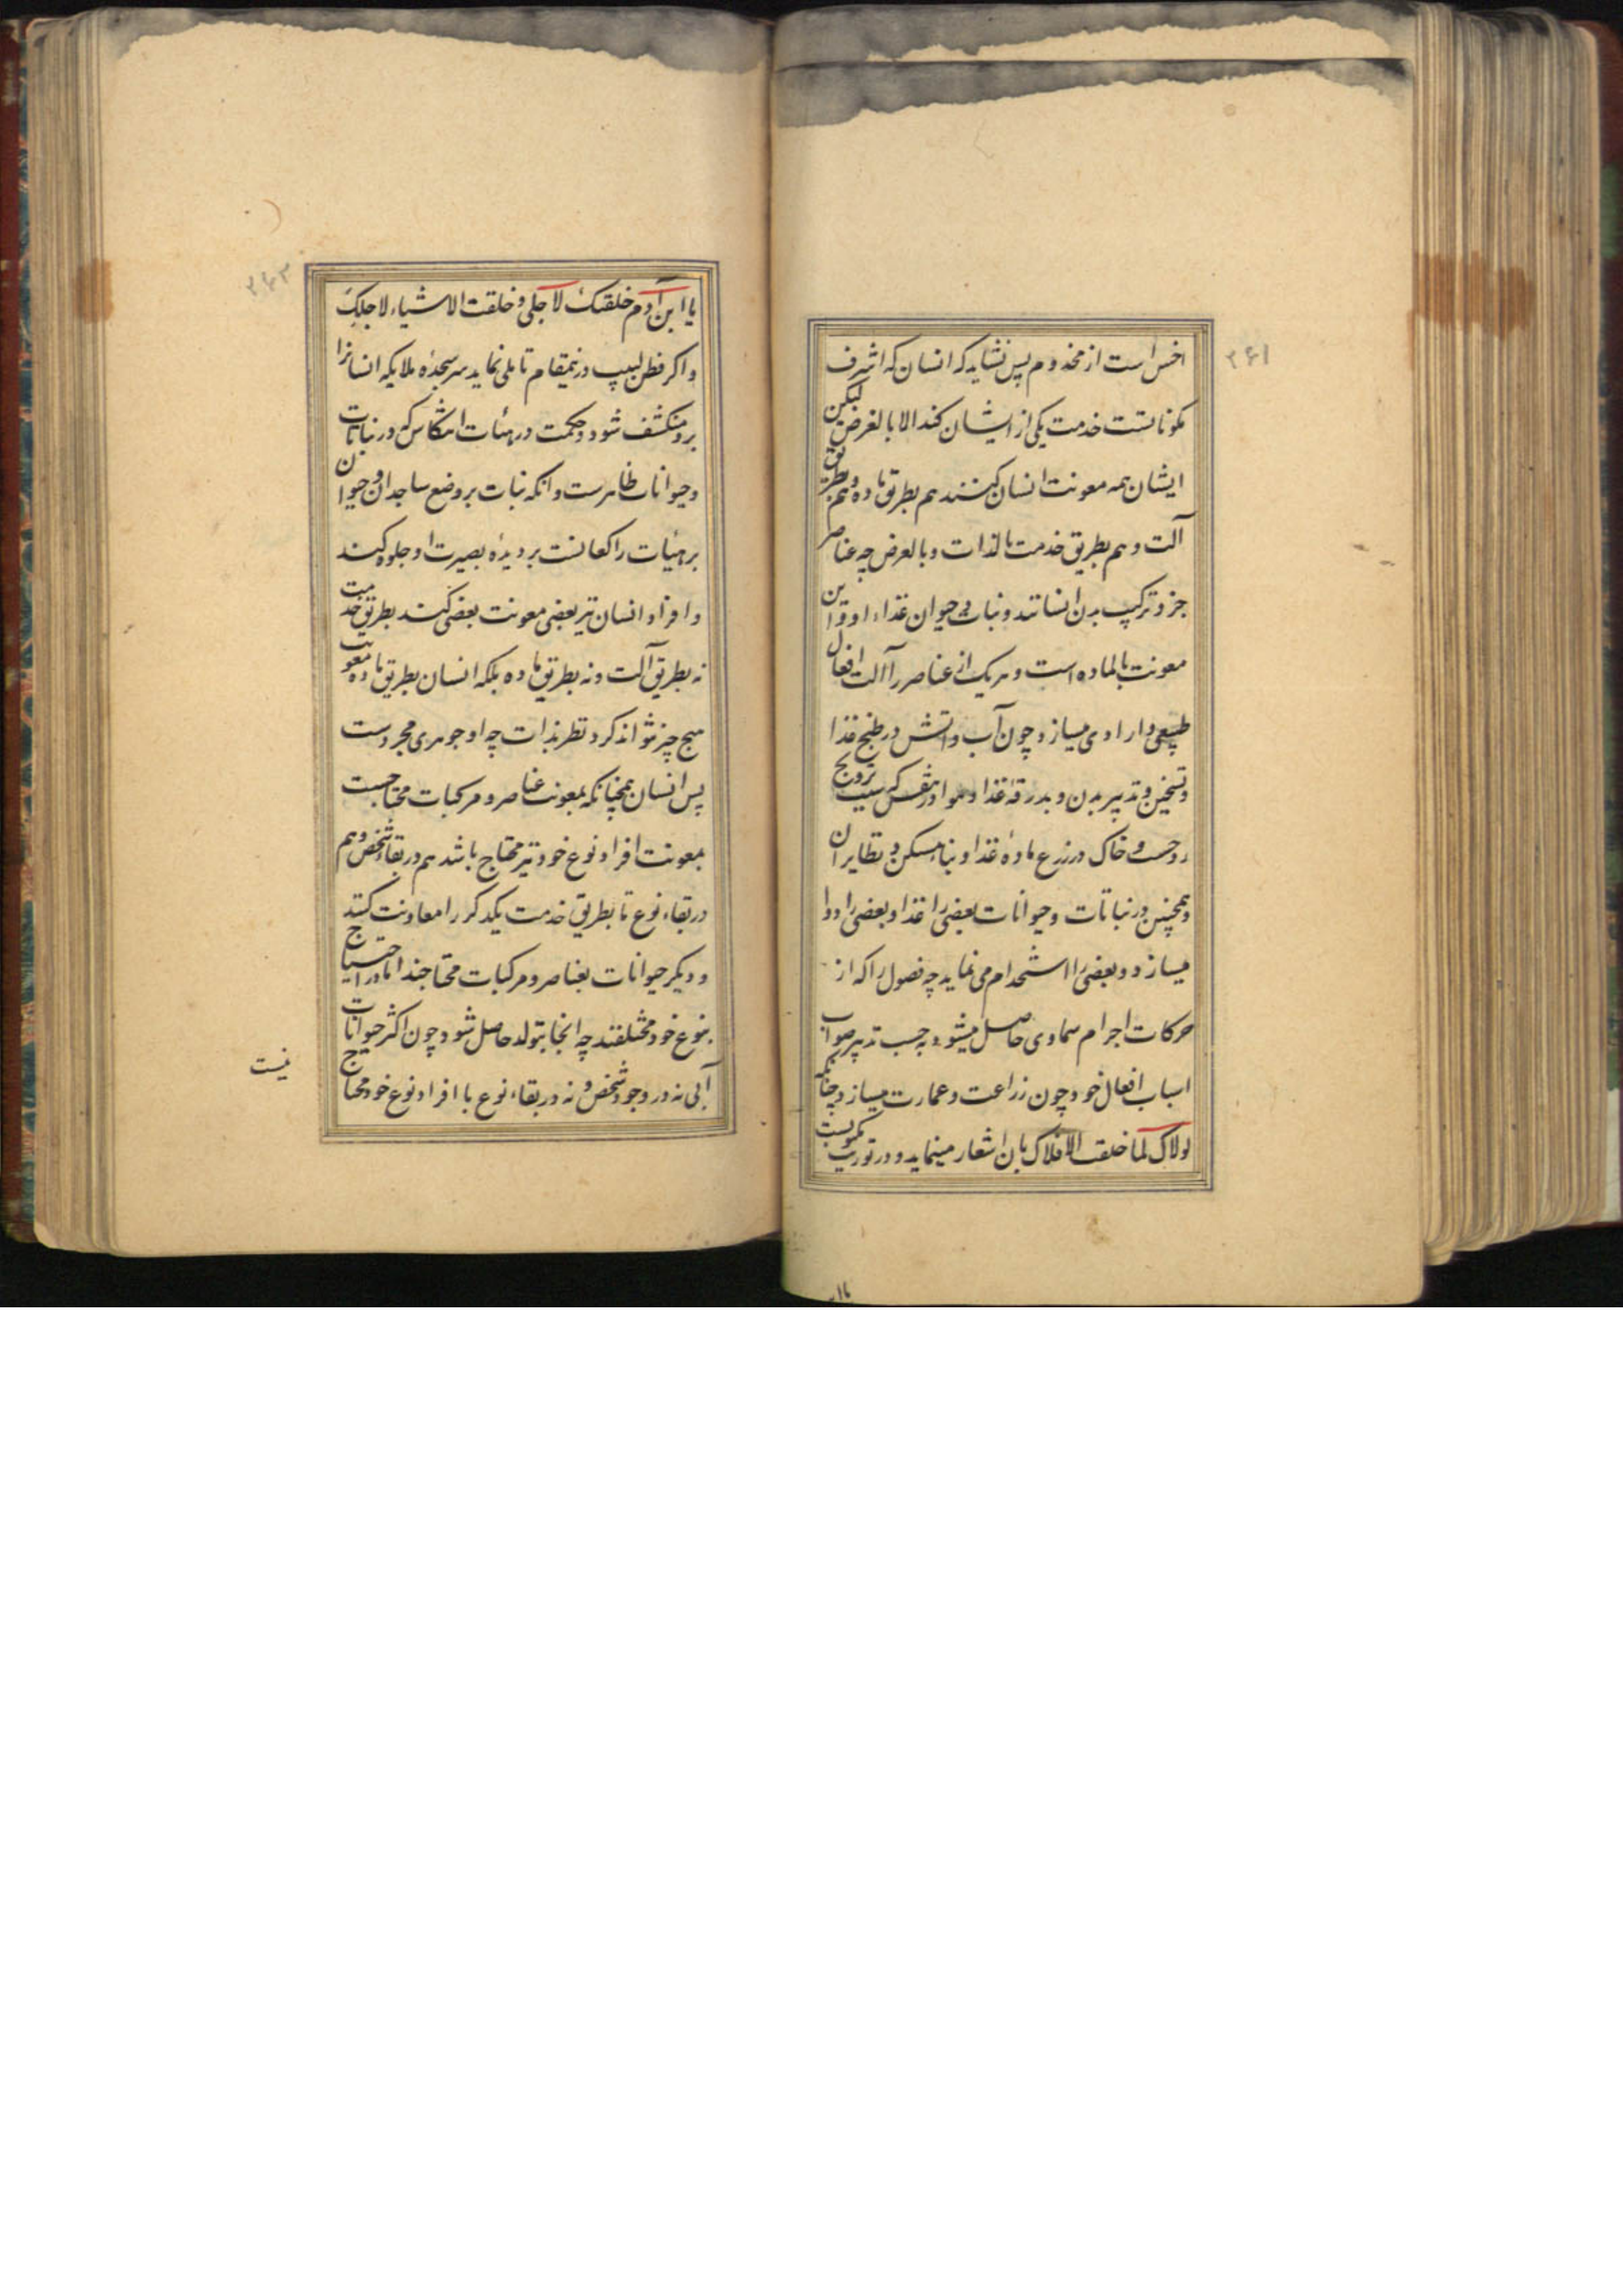 ۲۶۱
اخس است از مخدوم پس نشاید که انسان که اشرف
مکوناتست خدمت یکی از ایشان کند الا بالعرض لیکن
ایشان همه معونت انسان کنند هم بطریق ماده و هم بطریق
آلت و هم بطریق خدمت بالذات و بالعرض چه عناصر
جزو ترکیب بدن انسانند و نبات و حیوان غذاء او و این
معونت بالماده است و هر یک از عناصر را آلت افعال
طبیعی و ارادی میسازد چون آب و آتش در طبخ غذا
و تسخین و تدبیر بدن و بدرقهٔ غذا و هوا در تنفس که سبب ترویح
روحست و خاک در زرع مادهٔ غذا و بناء مسکن و نظایر ان
و همچنین در نباتات و حیوانات بعضی را غذا و بعضی را دوا
میسازد و بعضی را استخدام می نماید چه فصول را که از
حرکات اجرام سماوی حاصل میشود بحسب تدبیر صواب
اسباب افعال خود چون زراعت و عمارت میسازد چنانکه
لولاک لما خلقت الافلاک بان اشعار مینماید و در توریت مکتوبست
یا ابن
۲۶۲
یا ابن آدم خلقتک لاجلی و خلقت الاشیاء لاجلک
و اگر فطن لبیب درینمقام تاملی نماید سر سجدهٔ ملایکه انسانرا
برو منکشف شود و حکمت در هیئات انتکاس که در نباتات
و حیوانات ظاهرست و انکه نبات بر وضع ساجدان و حیوان
بر هیئات راکعانست بر دیدهٔ بصیرت او جلوه کند
و افراد انسان نیز بعضی معونت بعضی کنند بطریق خدمت
نه بطریق آلت و نه بطریق ماده بلکه انسان بطریق ماده معونت
هیچ چیز نتواند کرد نظر بذات چه او جوهری مجردست
پس انسان همچنانکه بمعونت عناصر و مرکبات محتاجست
بمعونت افراد نوع خود نیز محتاج باشد هم در بقاء شخص و هم
در بقاء نوع تا بطریق خدمت یکدگر را معاونت کنند
و دیگر حیوانات بعناصر و مرکبات محتاجند اما در احتیاج
بنوع خود مختلفند چه انجا بتولد حاصل شود چون اکثر حیوانات
آبی نه در وجود شخص و نه در بقاء نوع با افراد نوع خود محتاج
نیست